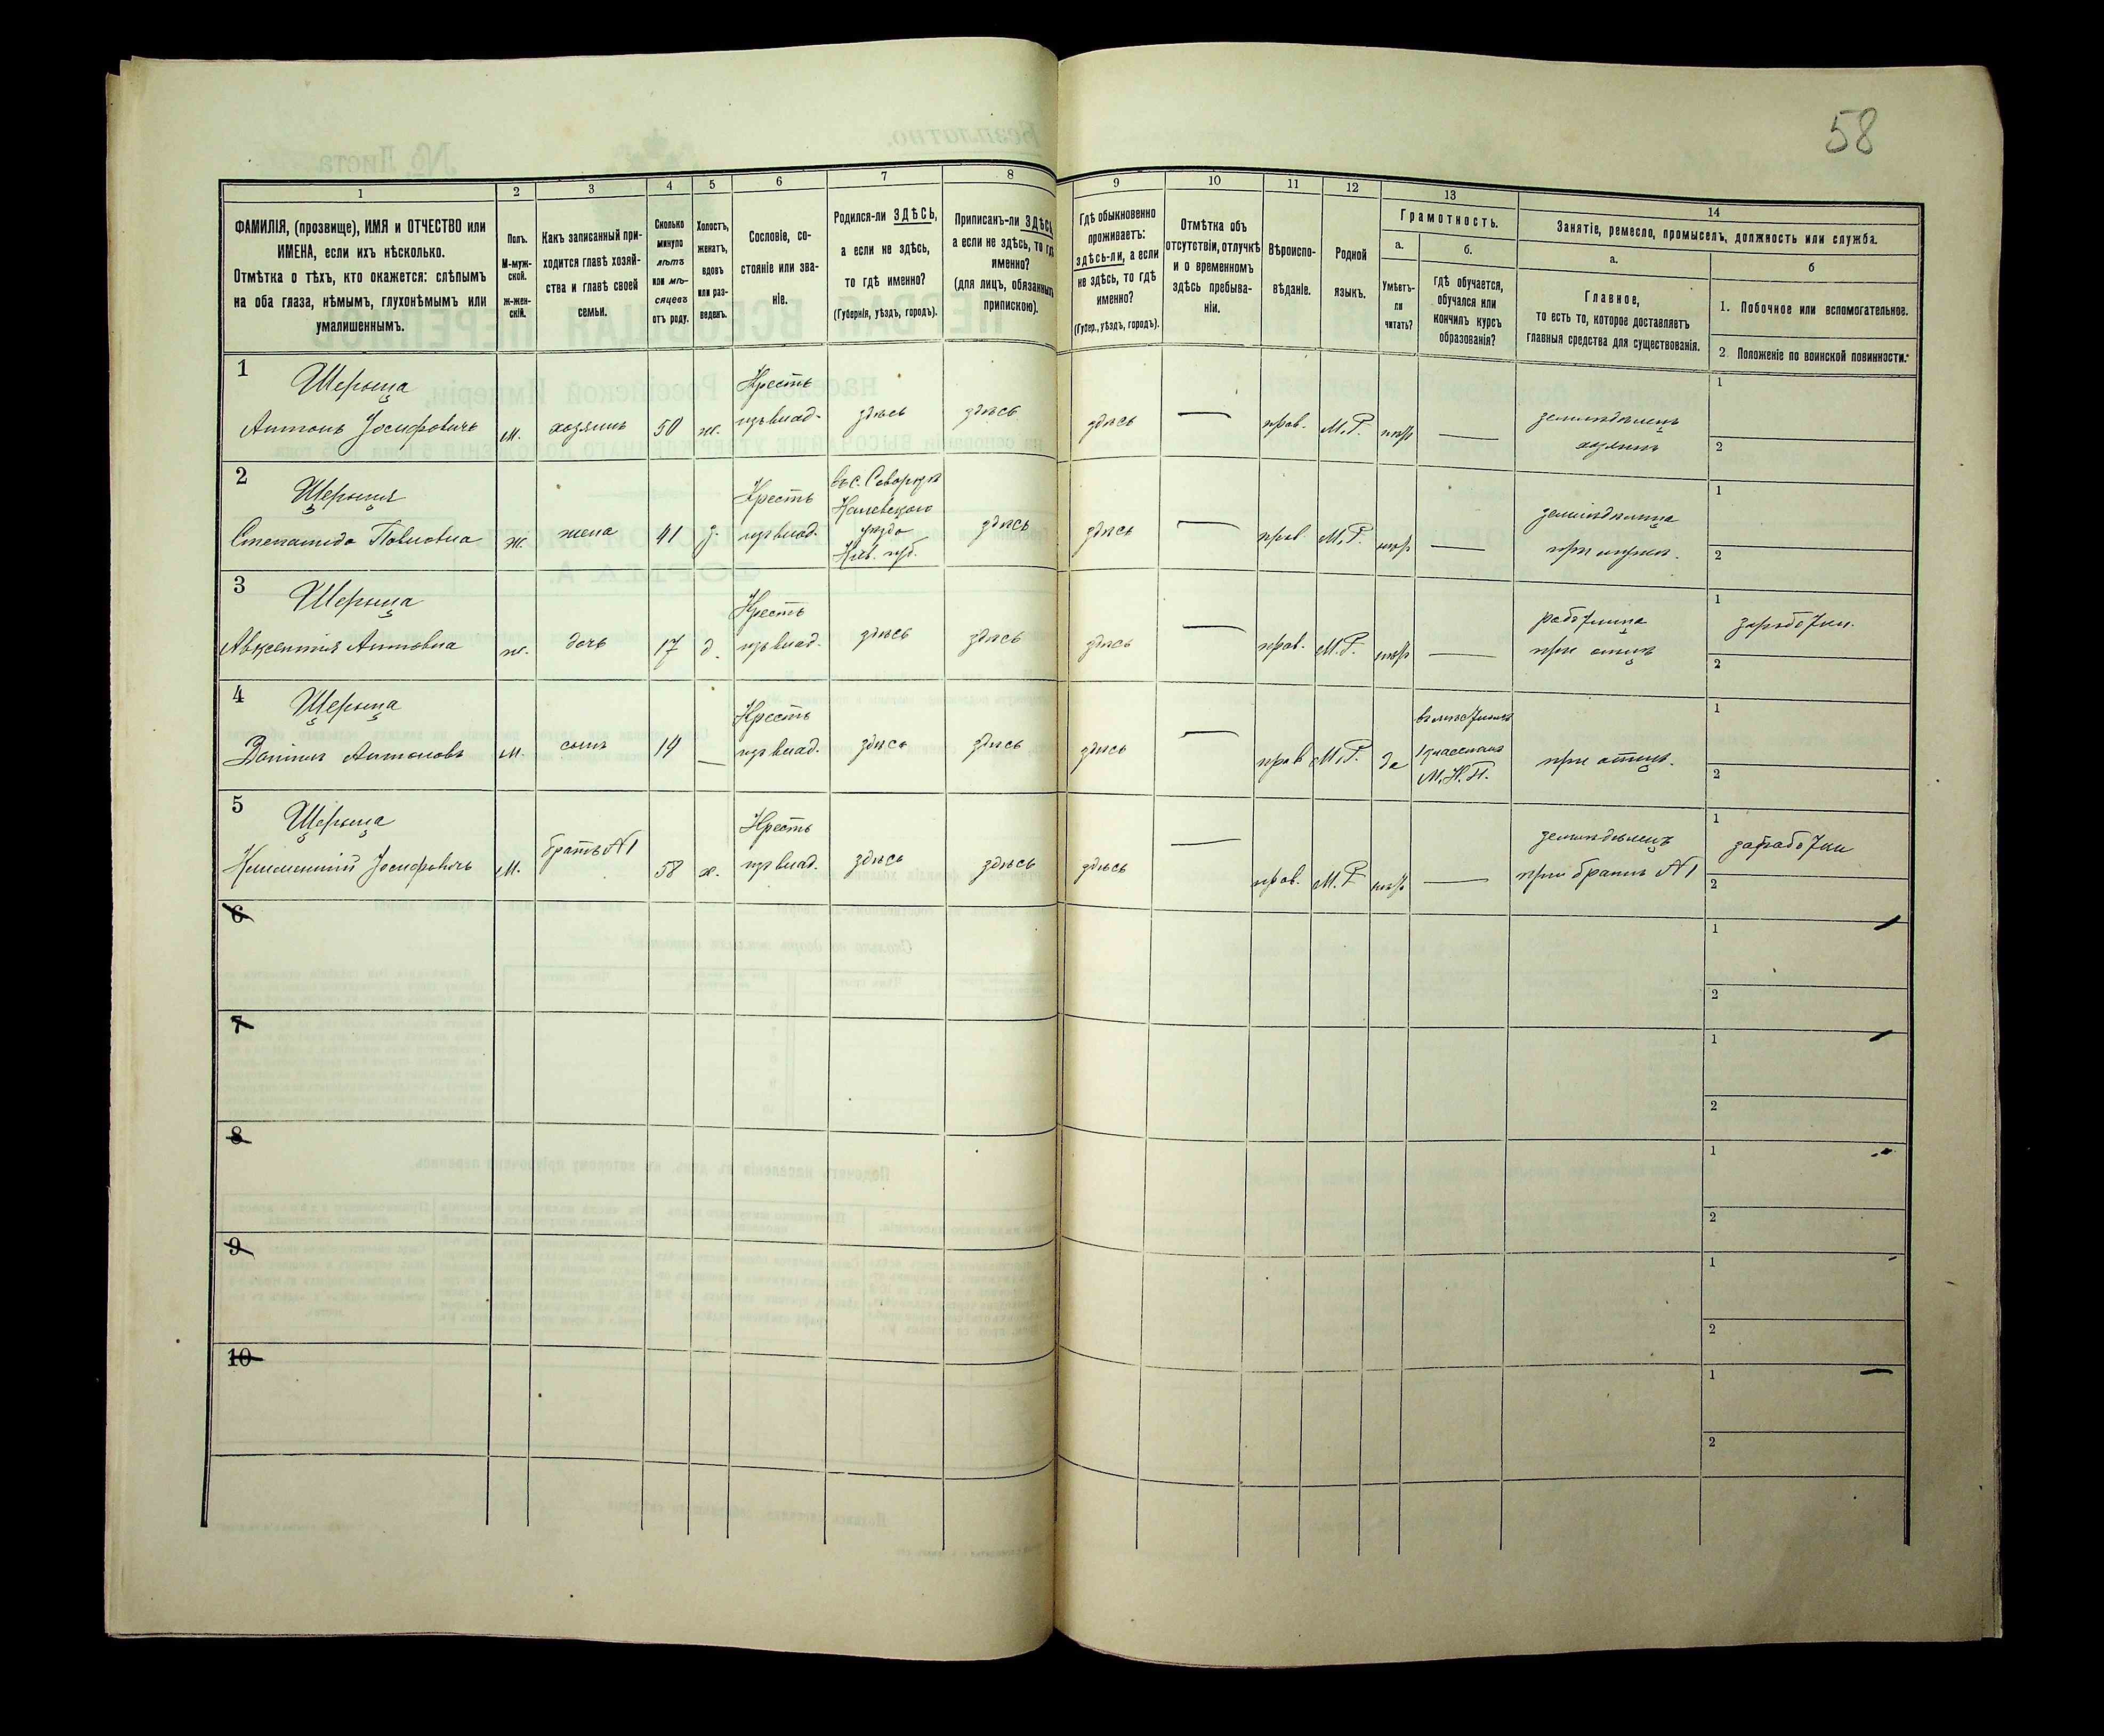 58
1
2
3
4
5
6
7
8
9
10
11
12
13
14
ФАМИЛІЯ, (прозвище), ИМЯ и ОТЧЕСТВО или
ИМЕНА, если ихъ нѣсколько.
Отмѣтка о тѣхъ, кто окажется: слѣпымъ
на оба глаза, нѣмымъ, глухонѣмымъ или
умалишеннымъ.
Полъ.
М-муж-
ской.
ж-жен-
скій.
Какъ записанный при-
ходится главѣ хозяй-
ства и главѣ своей
семьи.
Сколько
минуло
лѣтъ
или мѣ-
сяцевъ
отъ роду.
Холостъ,
женатъ,
вдовъ
или раз-
веденъ.
Сословіе, со-
стояніе или зва-
ніе.
Родился-ли ЗДѢСЬ,
а если не здѣсь,
то гдѣ именно?
(Губернія, уѣздъ, городъ).
Приписанъ-ли ЗДѢСЬ,
а если не здѣсь, то гдѣ
именно?
(для лицъ, обязанныхъ
припискою).
Гдѣ обыкновенно
проживаетъ:
здѣсь-ли, а если
не здѣсь, то гдѣ
именно?
(Губер., уѣздъ, городъ).
Отмѣтка объ
отсутствіи, отлучкѣ
и о временномъ
здѣсь пребыва-
ніи.
Вѣроиспо-
вѣданіе.
Родной
языкъ.
Грамотность.
а.
Умѣетъ-
ли
читать?
б.
гдѣ обучается,
обучался или
кончилъ курсъ
образованія?
Занятіе, ремесло, промыселъ, должность или служба.
а.
Главное,
то есть то, которое доставляетъ
главныя средства для существованія.
б
1. Побочное или вспомогательное.
2. Положеніе по воинской повинности.
1
Щерыца
Антонъ Іосифовичъ
м.
хозяинъ
50
ж.
Крестъ
изъ влад.
здѣсь
здѣсь
здѣсь
прав.
М.Р.
земледѣлецъ
хозяинъ
1
2
2
Щерыця
Степанида Павловна
ж.
жена
41
Крестъ
изъ влад.
Каневскаго
Кіев. губ.
здѣсь
здѣсь
прав.
М.Р.
земледѣлица
при мужѣ.
1
2
3
Щерыца
Авксентія Антовна
ж.
дочь
17
д.
Крестъ
изъ влад.
здѣсь
здѣсь
здѣсь
прав.
М.Р.
работница
при отцѣ
1
заработки.
2
4
Щерыца
Антоновъ
м.
сынъ
14
Крестъ
изъ влад.
здѣсь
здѣсь
здѣсь
прав
М.Р.
да
М.Н.П.
при отцѣ.
1
2
5
Щерыца
Климентій Іосифовичъ
м.
братъ №1
58
х.
Крестъ
изъ влад.
здѣсь
здѣсь
здѣсь
прав.
М.Р.
земледѣлецъ
при братѣ №1
1
заработки
2
6
1
2
7
1
2
8
1
2
9
1
2
10
1
2